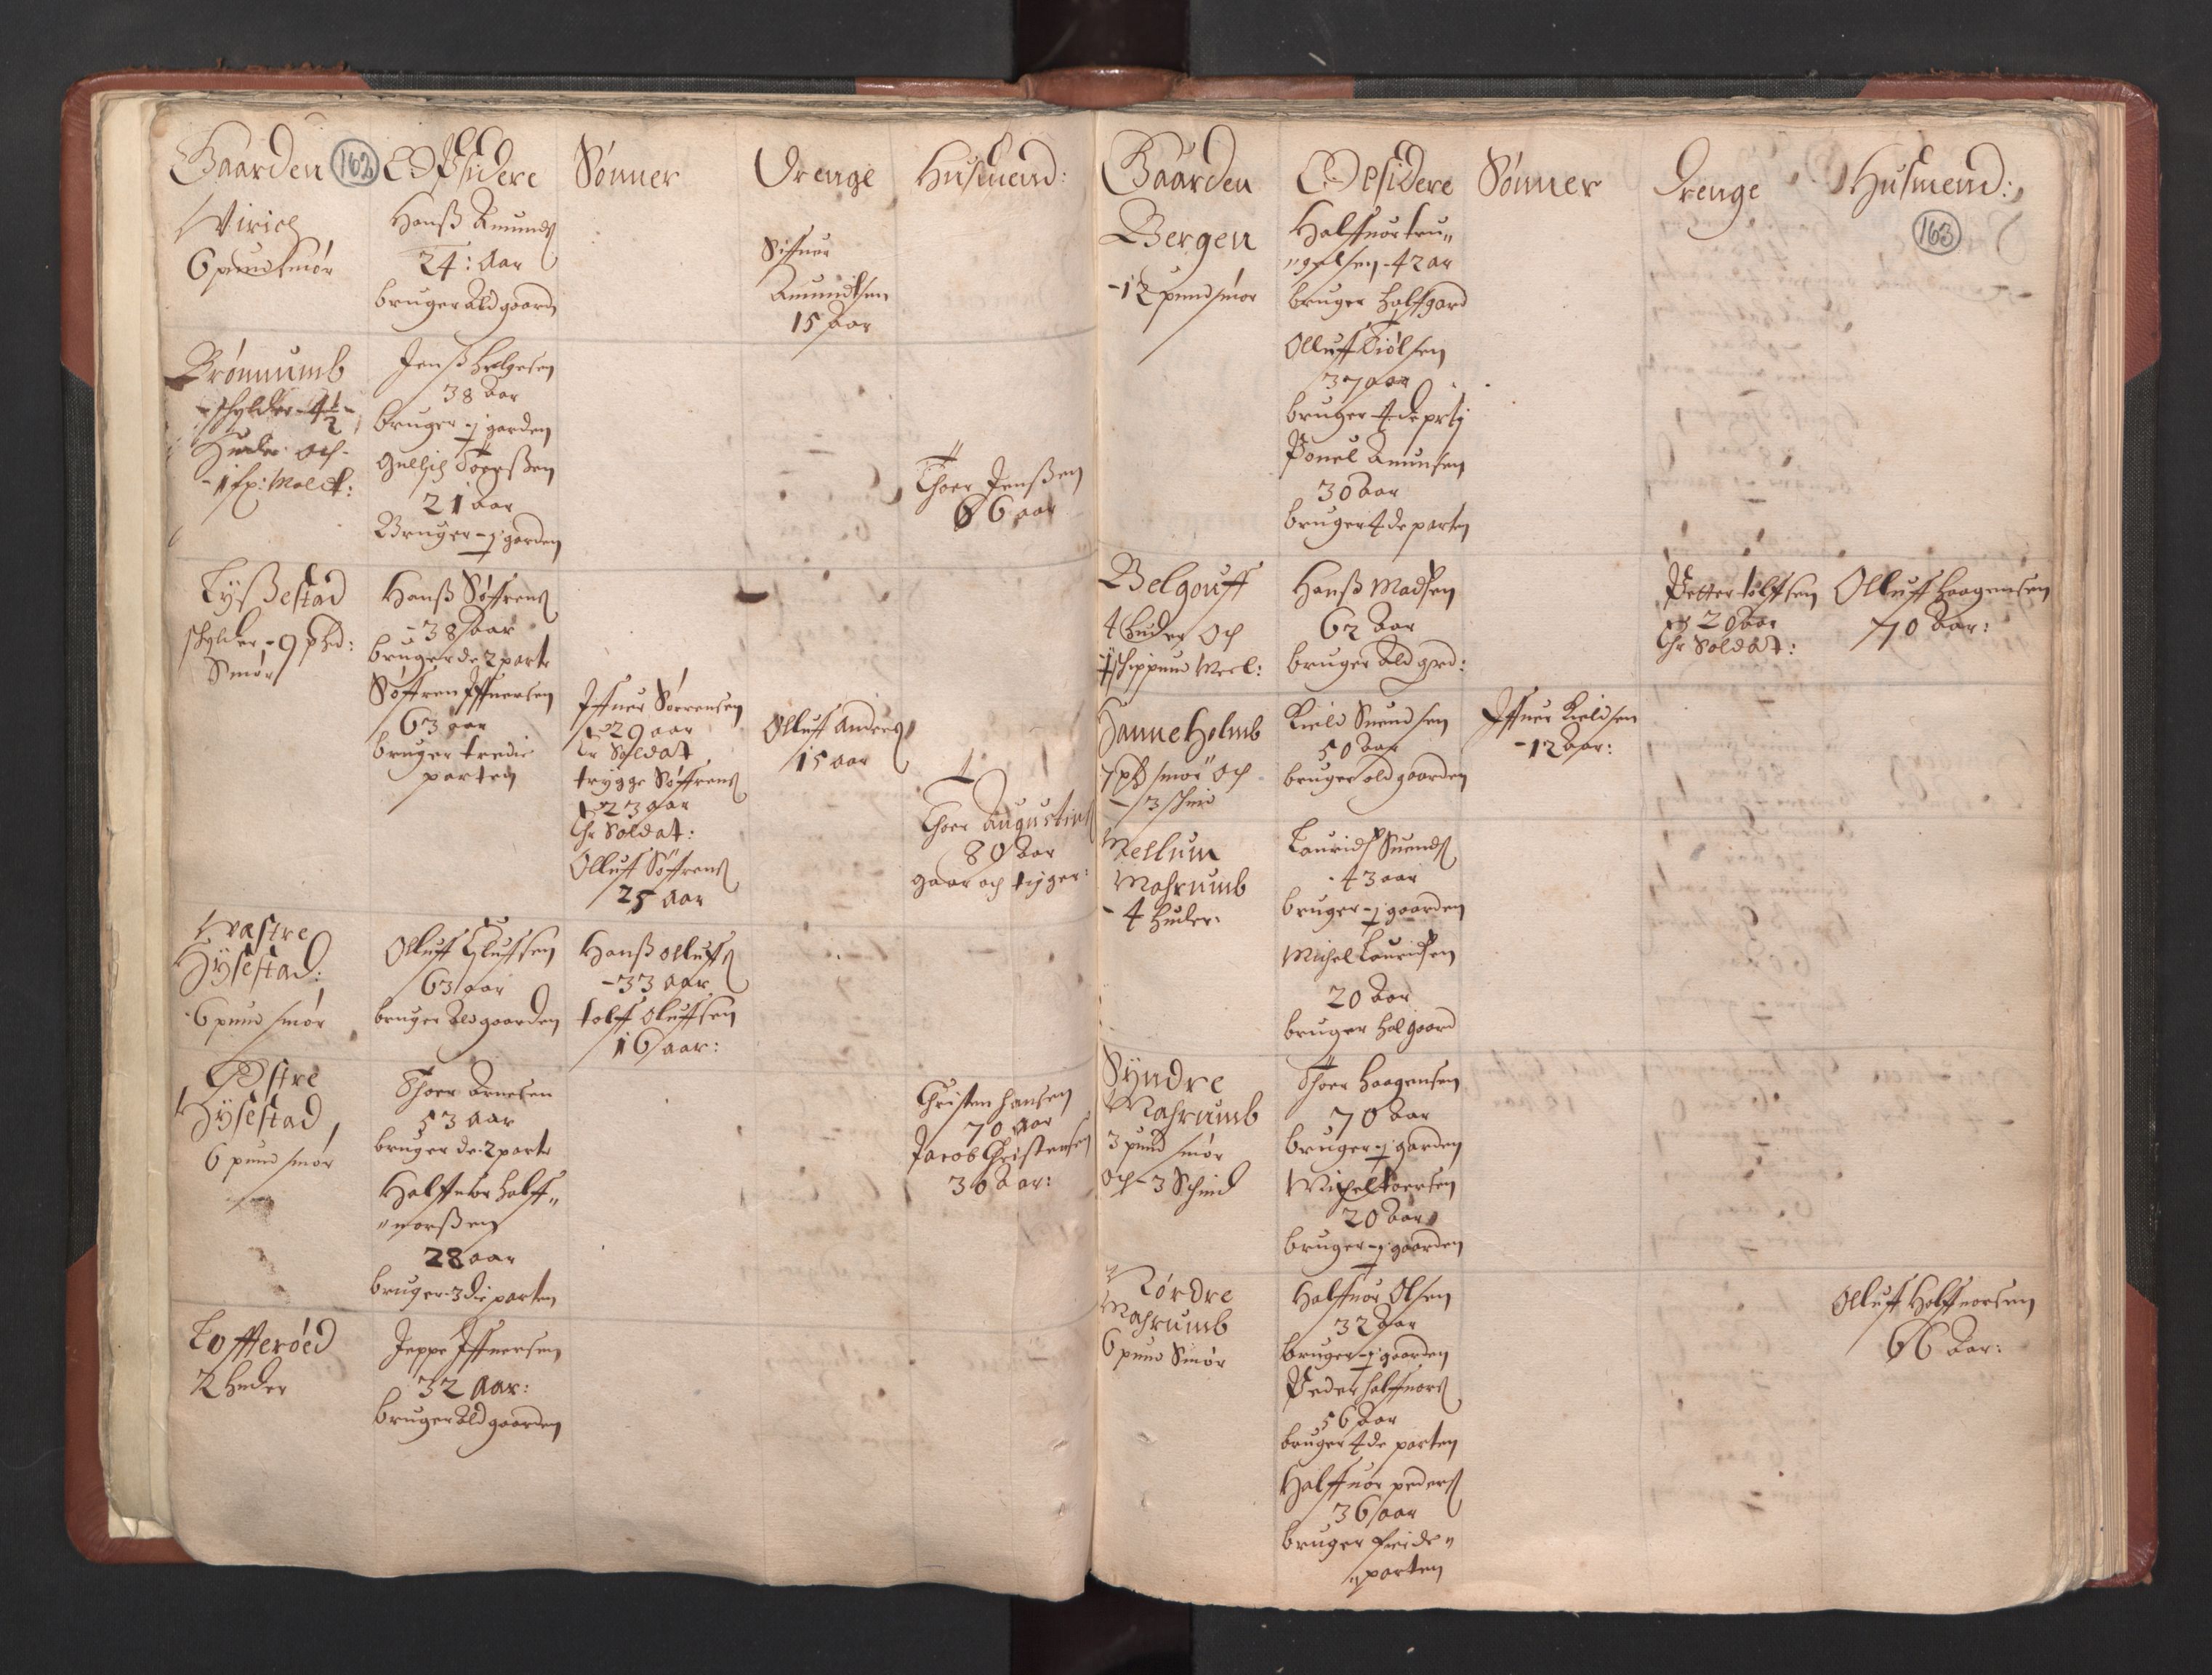 Gaarden 162 Opsidere Sønner Drenge Husmend:
Virich
6 pund smør
Hanß Amunds
24: Aar
bruger Ald gaard
Siffuer
Amundsen
15 Aar
Brønnumb
schylder 4½
Huder och
1 sp: Malt:
Jenß Helgesen
38 Aar
bruger ½ garden
Gulbich Toerßen
21 Aar
Bruger ½ garden
Thoer Jenßen
66 aar
Lyßestad
schylder 9 pd:
Smør
Hanß Søffrens
38 aar
bruger de 2 parte
Søffren Iffuersen
63 aar
bruger tredie
parten
Iffuer Sørrensen
29 aar
Er Soldat
trygge Søffrens
23 aar
Er Soldat:
Olluff Søffrens
25 Aar
Olluff Anders
15 aar
Thoer Augustins
80 Aar
gaar och tigger:
Væstre
Hÿsestad:
6 pund smør
Olluff Olluffsen
63 aar
bruger Ald gaarden
Hanß Olluffs
33 aar
tolff Oluffsen
16 aar:
Østre
Hÿsestad
6 pund smør
Thoer Arnesen
53 Aar
bruger de 2 parte
Halffuor halff„
„uorßen
28 aar
bruger 3die parten
Christen hansen
70 Aar
Jacob Christensen
30 Aar:
Lofferøed
2 huder
Jeppe Iffuersen
32 Aar:
bruger Ald gaarden
Gaarden Opsidere Sønner Drenge Husmend:
163
Bergen
12 pund smør
Halffuor tru„
„gelsen 42 ar
bruger halfgard
Olluff Kiølsen
37 aar
bruger 4de prtj
Pouel Amunsen
30 Aar
bruger 4de parten
Belgouff
4 huder Och
1 schippund Meel:
Hanß Madsen
62 Aar
bruger Ald grd:
Petter tolffsen
20 Aar
Er Soldat:
Olluff Haagensen
70 Aar:
Hanneholmb
7 pd smør Och
3 schind
Kield Suendsen
50 Aar
bruger ald gaarden
Iffuer Kieldsen
12 Aar:
Mellum
Mahrumb
4 huder:
Laurids Suends
43 aar
bruger ½ gaarden
Michel Lauridsen
20 Aar
bruger hal gaard
Syndre
Mahrumb
3 pund smør
Och 3 Schind
Thoer Haagensen
70 Aar
bruger ½ garden
Michel toersen
20 Aar
bruger ½ gaarden
Nørdre
Mahrumb
6 pund Smør
Halffuor Olsen
32 Aar
bruger ½ gaarden
Peder halffuors
56 Aar
bruger 4de parten
Halffuor peders
36 aar
bruger
„parten
Olluff Halffuorsen
66 Aar: